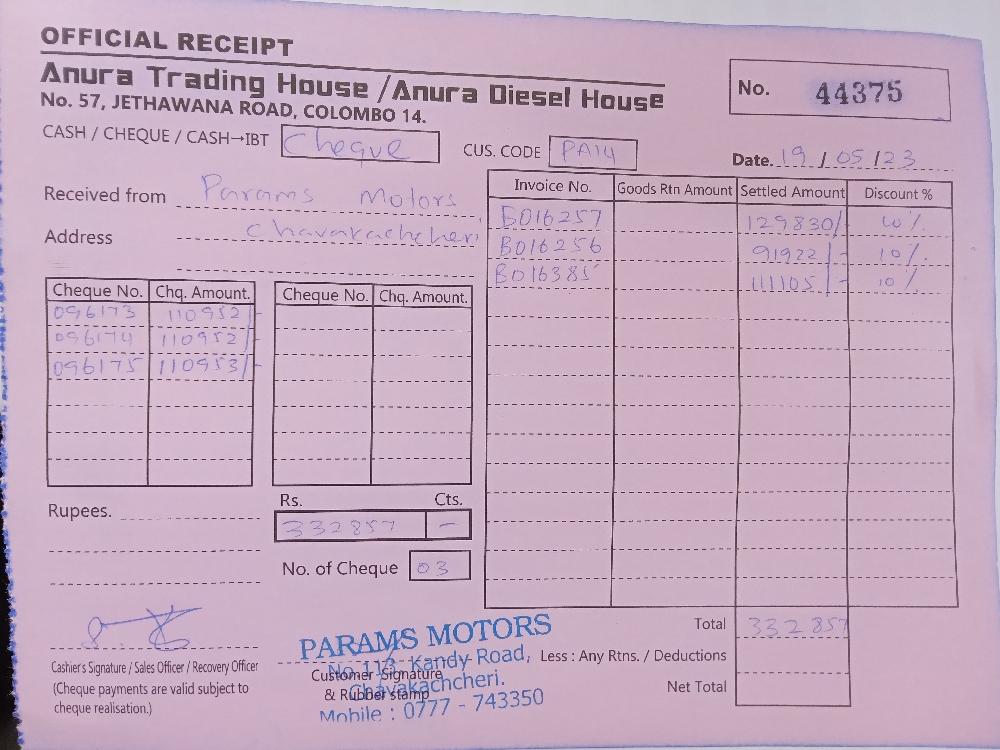 OFFICIAL RECEIPT
Anura Trading House / Anura Diesel House
No. 57, JETHAWANA ROAD, COLOMBO 14.
No. 44375
CASH / CHEQUE / CASH→IBT Cheque
CUS. CODE PA14
Date. 19 / 05 / 23
Received from Params Motors
Address Chavakachcheri
Invoice No. Goods Rtn Amount Settled Amount Discount %
B016257 129830/- 10%
B016256 91922/- 10%
B016385 111105/- 10%
Cheque No. Chq. Amount.
096173 110952/-
096174 110952/-
096175 110953/-
Cheque No. Chq. Amount.
Rupees.
Rs. Cts.
332857 -
No. of Cheque 03
Total 332857
Less : Any Rtns. / Deductions
Net Total
Cashier's Signature / Sales Officer / Recovery Officer
(Cheque payments are valid subject to
cheque realisation.)
Customer Signature
& Rubber stamp
PARAMS MOTORS
Kandy Road,
Chavakachcheri.
Mobile : 0777 - 743350